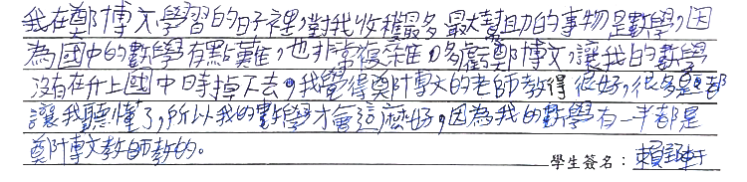 我在鄭博文學習的日子裡，對我收穫最多最大幫助的事物是數學，因
為國中的數學有點難，也非常複雜，多虧鄭博文，讓我的數學
沒有在升上國中時掉下去。我覺得鄭博文的老師教得很好，很多都
讓我聽懂了，所以我的數學才會這麼好，因為我的數學有一半都是
鄭博文教師教的。
學生簽名：賴軒